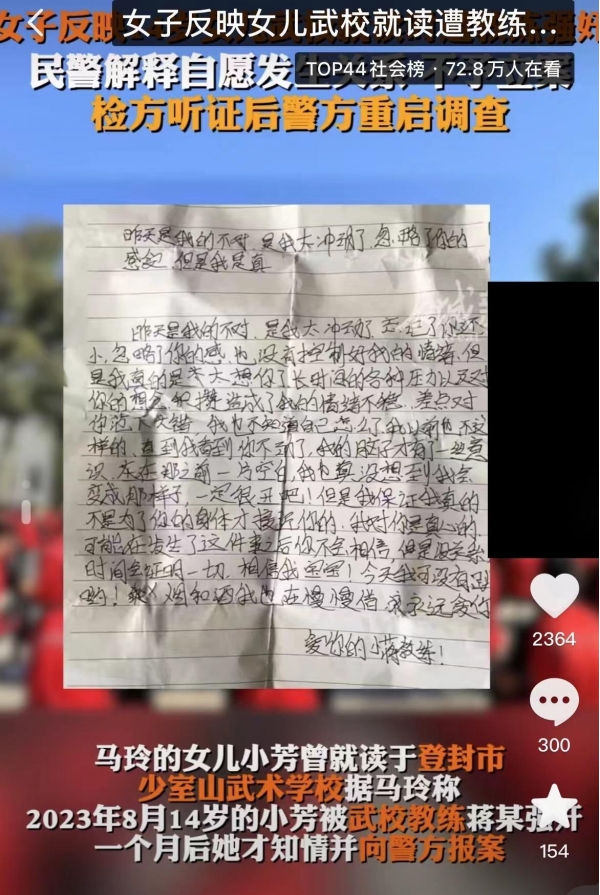 女子反映女儿武校就读遭教练...
女子反映
民警解释自愿发
TOP44社会榜 · 72.8万人在看
检方听证后警方重启调查
昨天是我的不对,是我太冲动了,忽略了你的
感受,但是我是真
昨天是我的不对,是我太冲动了
小,忽略了你的感 没有控制好我的情绪,但
是我真的是 太想你了,长时间的各种压力以及对
你的想念 积攒造成了我的情绪不稳,差点对
你犯下大错,我也不知道自己怎么了,我以前也不这
样的,直到我看到你不动了,我的脑子才有了一些意
识,在那之前一片空白,我也真没想到我会
变成那样子,一定很 吧!但是我保证我真的
不是为了你的身体才接近你的,我对你是真心的,
可能在发生了这件事之后你不会相信,但是没关系
时间会证明一切,相信我宝宝!今天我可没有
哟! 烟和酒我也在慢慢 永永远
爱你的小蒋教练!
2364
300
154
马玲的女儿小芳曾就读于登封市
少室山武术学校据马玲称
2023年8月14岁的小芳被武校教练蒋某强奸
一个月后她才知情并向警方报案